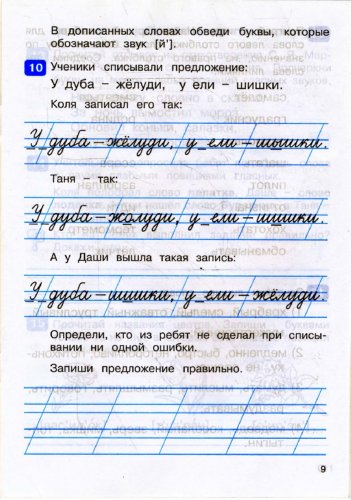 В дописанных словах обведи буквы, которые
обозначают звук [й'].
10 Ученики списывали предложение:
У дуба – жёлуди, у ели – шишки.
Коля записал его так:
У_дуба – жёлуди, у_ели – шышки.
Таня – так:
У_дуба – жолуди, у_ели – шишики.
А у Даши вышла такая запись:
У_дуба – шишки, у_ели – жёлуди.
Определи, кто из ребят не сделал при списы-
вании ни одной ошибки.
Запиши предложение правильно.
9